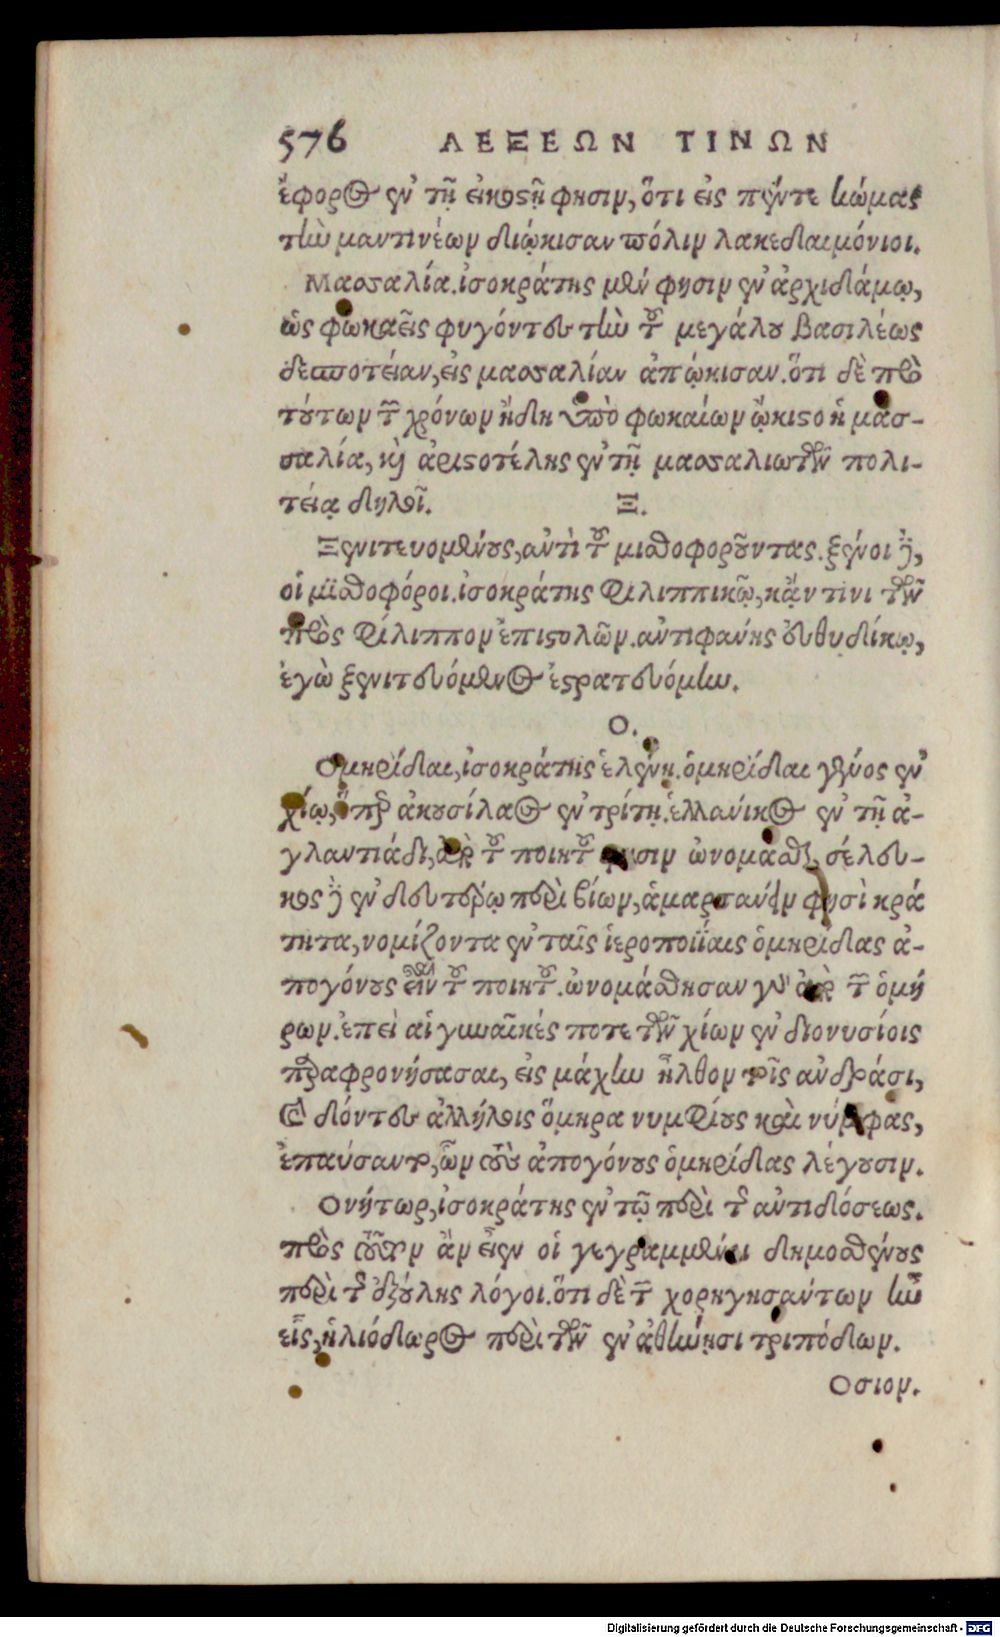 576 ΛΕΞΕΩΝ ΤΙΝΩΝ
ἔφορος ἐν τῇ εἰκοστῇ φησιν, ὅτι εἰς πέντε κώμας
τὴν μαντινέων διῴκισαν πόλιν λακεδαιμόνιοι.
Μασσαλία. ἰσοκράτης μέν φησιν ἐν ἀρχιδάμῳ,
ὡς φωκαεῖς φυγόντες τὴν τοῦ μεγάλου βασιλέως
δεσποτείαν, εἰς μασσαλίαν ἀπῴκισαν. ὅτι δὲ πρὸ
τούτων τῶν χρόνων ἤδη ὑπὸ φωκαίων ᾤκιστο ἡ μασ-
σαλία, καὶ ἀριστοτέλης ἐν τῇ μασσαλιωτῶν πολι-
τείᾳ δηλοῖ. Ξ.
Ξενιτευομένους, ἀντὶ τοῦ μισθοφοροῦντας. ξένοι γὰρ,
οἱ μισθοφόροι. ἰσοκράτης Φιλιππικῷ, κᾄν τινι τῶν
πρὸς Φίλιππον ἐπιστολῶν. ἀντιφάνης εὐθυδίκῳ,
ἐγὼ ξενιτευόμενος ἐστρατευόμην.
Ο.
Ομηρίδαι, ἰσοκράτης ἑλένῃ. ὁμηρίδαι γένος ἐν
χίῳ, ὅπερ ἀκουσίλαος ἐν τρίτῃ. ἑλλάνικος ἐν τῇ ἀ-
γλαντιάδι, ἀπὸ τοῦ ποιητοῦ φησιν ὠνομάσθαι, σέλευ-
κος δὲ ἐν δευτέρῳ περὶ βίων, ἁμαρτάνειν φησὶ κρά
τητα, νομίζοντα ἐν ταῖς ἱεροποιΐαις ὁμηρίδας ἀ-
πογόνους εἶναι τοῦ ποιητοῦ. ὠνομάσθησαν γὰρ ἀπὸ τῶν ὁμή
ρων. ἐπεὶ αἱ γυναῖκές ποτε τῶν χίων ἐν διονυσίοις
παραφρονήσασαι, εἰς μάχην ἦλθον τοῖς ἀνδράσι,
καὶ δόντες ἀλλήλοις ὅμηρα νυμφίους καὶ νύμφας,
ἐπαύσαντο, ὧν τοὺς ἀπογόνους ὁμηρίδας λέγουσιν.
Ονήτωρ, ἰσοκράτης ἐν τῷ περὶ τῆς ἀντιδόσεως.
πρὸς τοῦτον ἂν εἶεν οἱ γεγραμμένοι δημοσθένους
περὶ τῆς ἐξούλης λόγοι. ὅτι δὲ τῶν χορηγησάντων ἦν
εἷς, ἡλιόδωρος περὶ τῶν ἐν ἀθήνῃσι τριπόδων.
Οσιον.
Digitalisierung gefördert durch die Deutsche Forschungsgemeinschaft - DFG